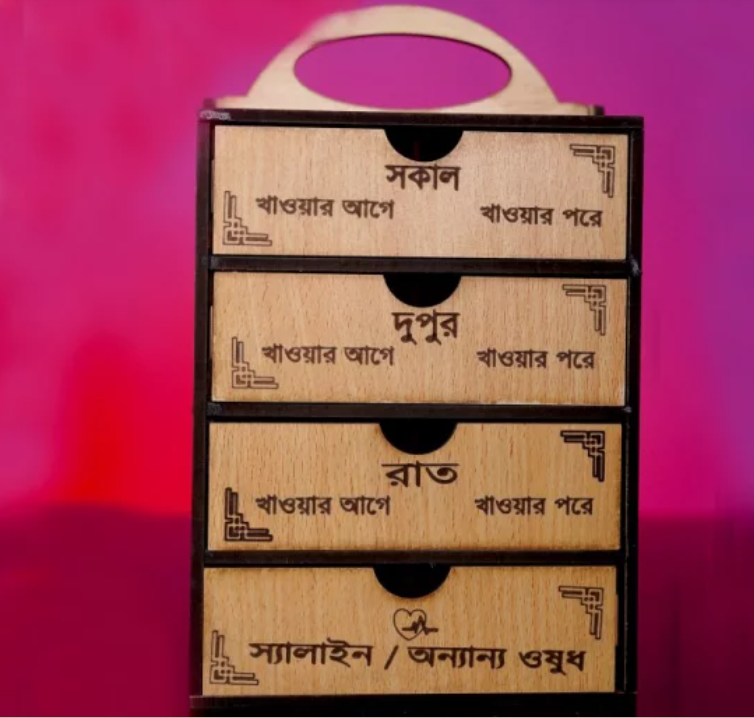 সকাল
খাওয়ার আগে খাওয়ার পরে
দুপুর
খাওয়ার আগে খাওয়ার পরে
রাত
খাওয়ার আগে খাওয়ার পরে
স্যালাইন / অন্যান্য ওষুধ